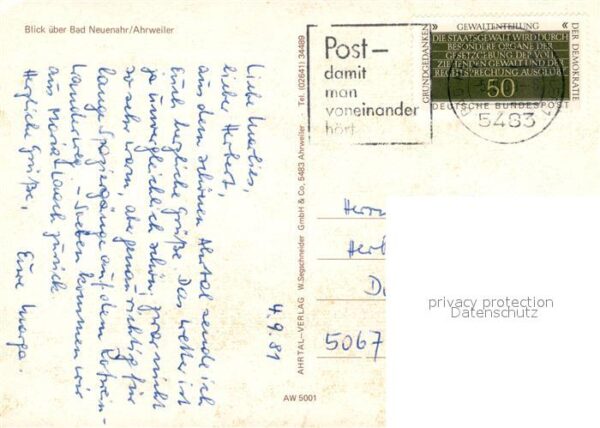 Blick über Bad Neuenahr/Ahrweiler
Liebe Marlies,
lieber Herbert,
aus dem schönen Ahrtal sende ich
Euch herzliche Grüße. Das Wetter ist
ja unvergleichlich schön; zwar nicht
so sehr warm, aber genau richtig für
lange Spaziergänge auf dem Rotwein-
wanderweg. – Soeben kommen wir
aus Maria Laach zurück.
Herzliche Grüße,
Eure Marga.
4.9.81
AHRTAL-VERLAG W. Segschneider GmbH & Co, 5483 Ahrweiler Tel. (02641) 34489
AW 5001
Post–
damit
man
voneinander
hört
GRUNDGEDANKEN
GEWALTENTEILUNG
DER DEMOKRATIE
DIE STAATSGEWALT WIRD DURCH
BESONDERE ORGANE DER
GESETZGEBUNG DER VOLL-
ZIEHENDEN GEWALT UND DER
RECHTSPRECHUNG AUSGEÜBT
50
DEUTSCHE BUNDESPOST
5483
Her
5067
privacy protection
Datenschutz